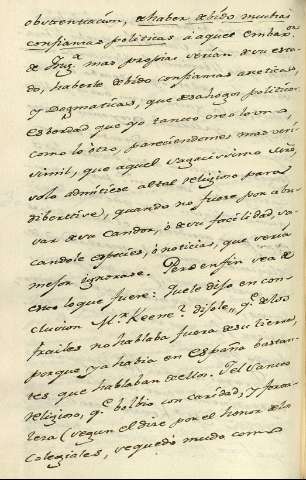 observacion, de haber debido muchas
confianzas politicas à aquel Embax.or
de Ing.a mas propias serian de su esta-
do, haberle debido confianzas asceticas,
y Dogmaticas, que desahogos politicos.
Es verdad que yo tanto creo lo un o,
como lo otro, pareciendome mas veri-
simil, que aquel sagacissimo Mro,
solo admitiese al tal religioso para
divertirse, quando no fuese por abu-
sar de su candor, ò de su facilidad, sa-
candole especies, ò noticias, que seria
mejor ignorase. Pero en fin sea de
esto lo que fuere: que le dijo en con-
clusion Mr Keene? dijole, q.e de los
frailes no hablaba fuera de su tierra,
porque ya habia en España bastan-
tes que hablaban de ellos. I el Santo
religioso, q.e bolbio con caridad, y forta-
leza (segun el dice) por el honor de los
Colegiales, se quedò mudo como